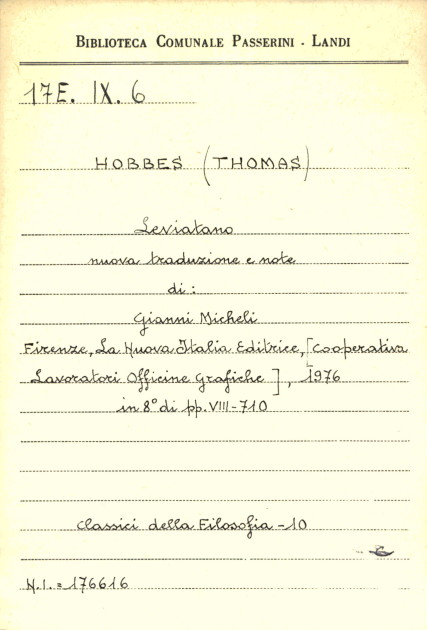 BIBLIOTECA COMUNALE PASSERINI - LANDI
17E. IX. 6
HOBBES (THOMAS)
Leviatano
nuova traduzione e note
di :
Gianni Micheli
Firenze, La Nuova Italia Editrice, [Cooperativa
Lavoratori Officine Grafiche ], 1976
in 8° di pp. VIII-710
Classici della Filosofia - 10
N.I. = 176616